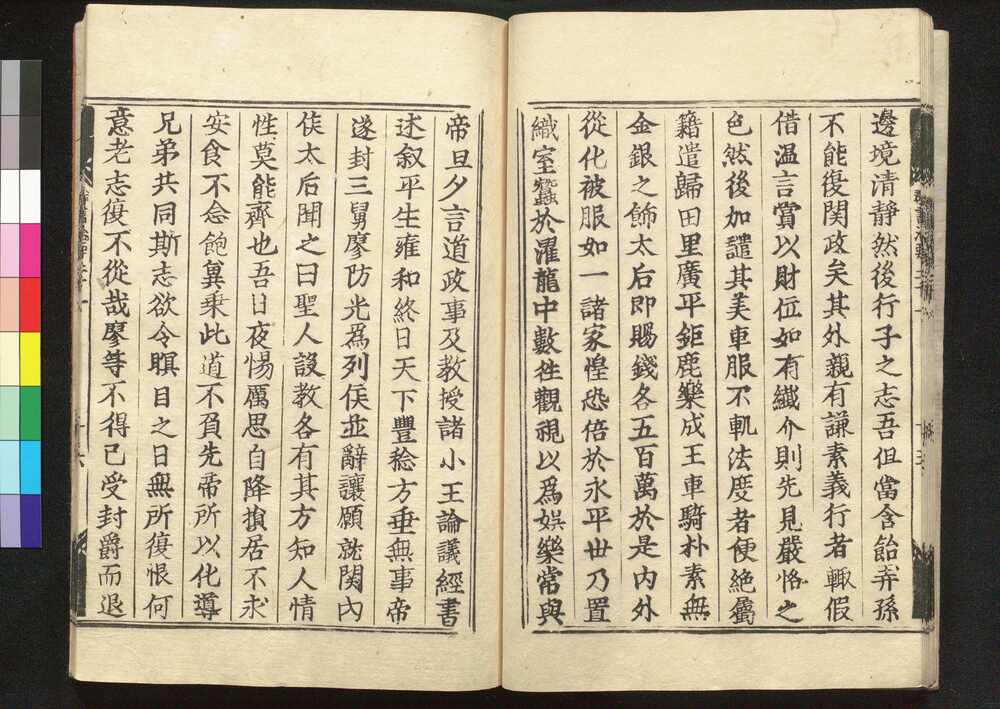 邊境清靜然後行子之志吾但當含飴弄孫
不能復関政矣其外親有謙素義行者輙假
借温言賞以財位如有纖介則先見嚴恪之
色然後加譴其美車服不軌法度者便絶屬
籍遣歸田里廣平鉅鹿樂成王車騎朴素無
金銀之飾太后即賜錢各五百萬於是内外
從化被服如一諸家惶恐倍於永平世乃置
織室蠶於濯龍中數往觀視以爲娯樂常與
帝旦夕言道政事及教授諸小王論議經書
述叙平生雍和終日天下豐稔方垂無事帝
遂封三舅廖防光爲列侯並辭讓願就関內
侯太后聞之曰聖人設教各有其方知人情
性莫能齊也吾日夜惕厲思自降損居不求
安食不念飽冀乗此道不負先帝所以化導
兄弟共同斯志欲令瞑目之日無所復恨何
意老志復不從哉廖等不得已受封爵而退